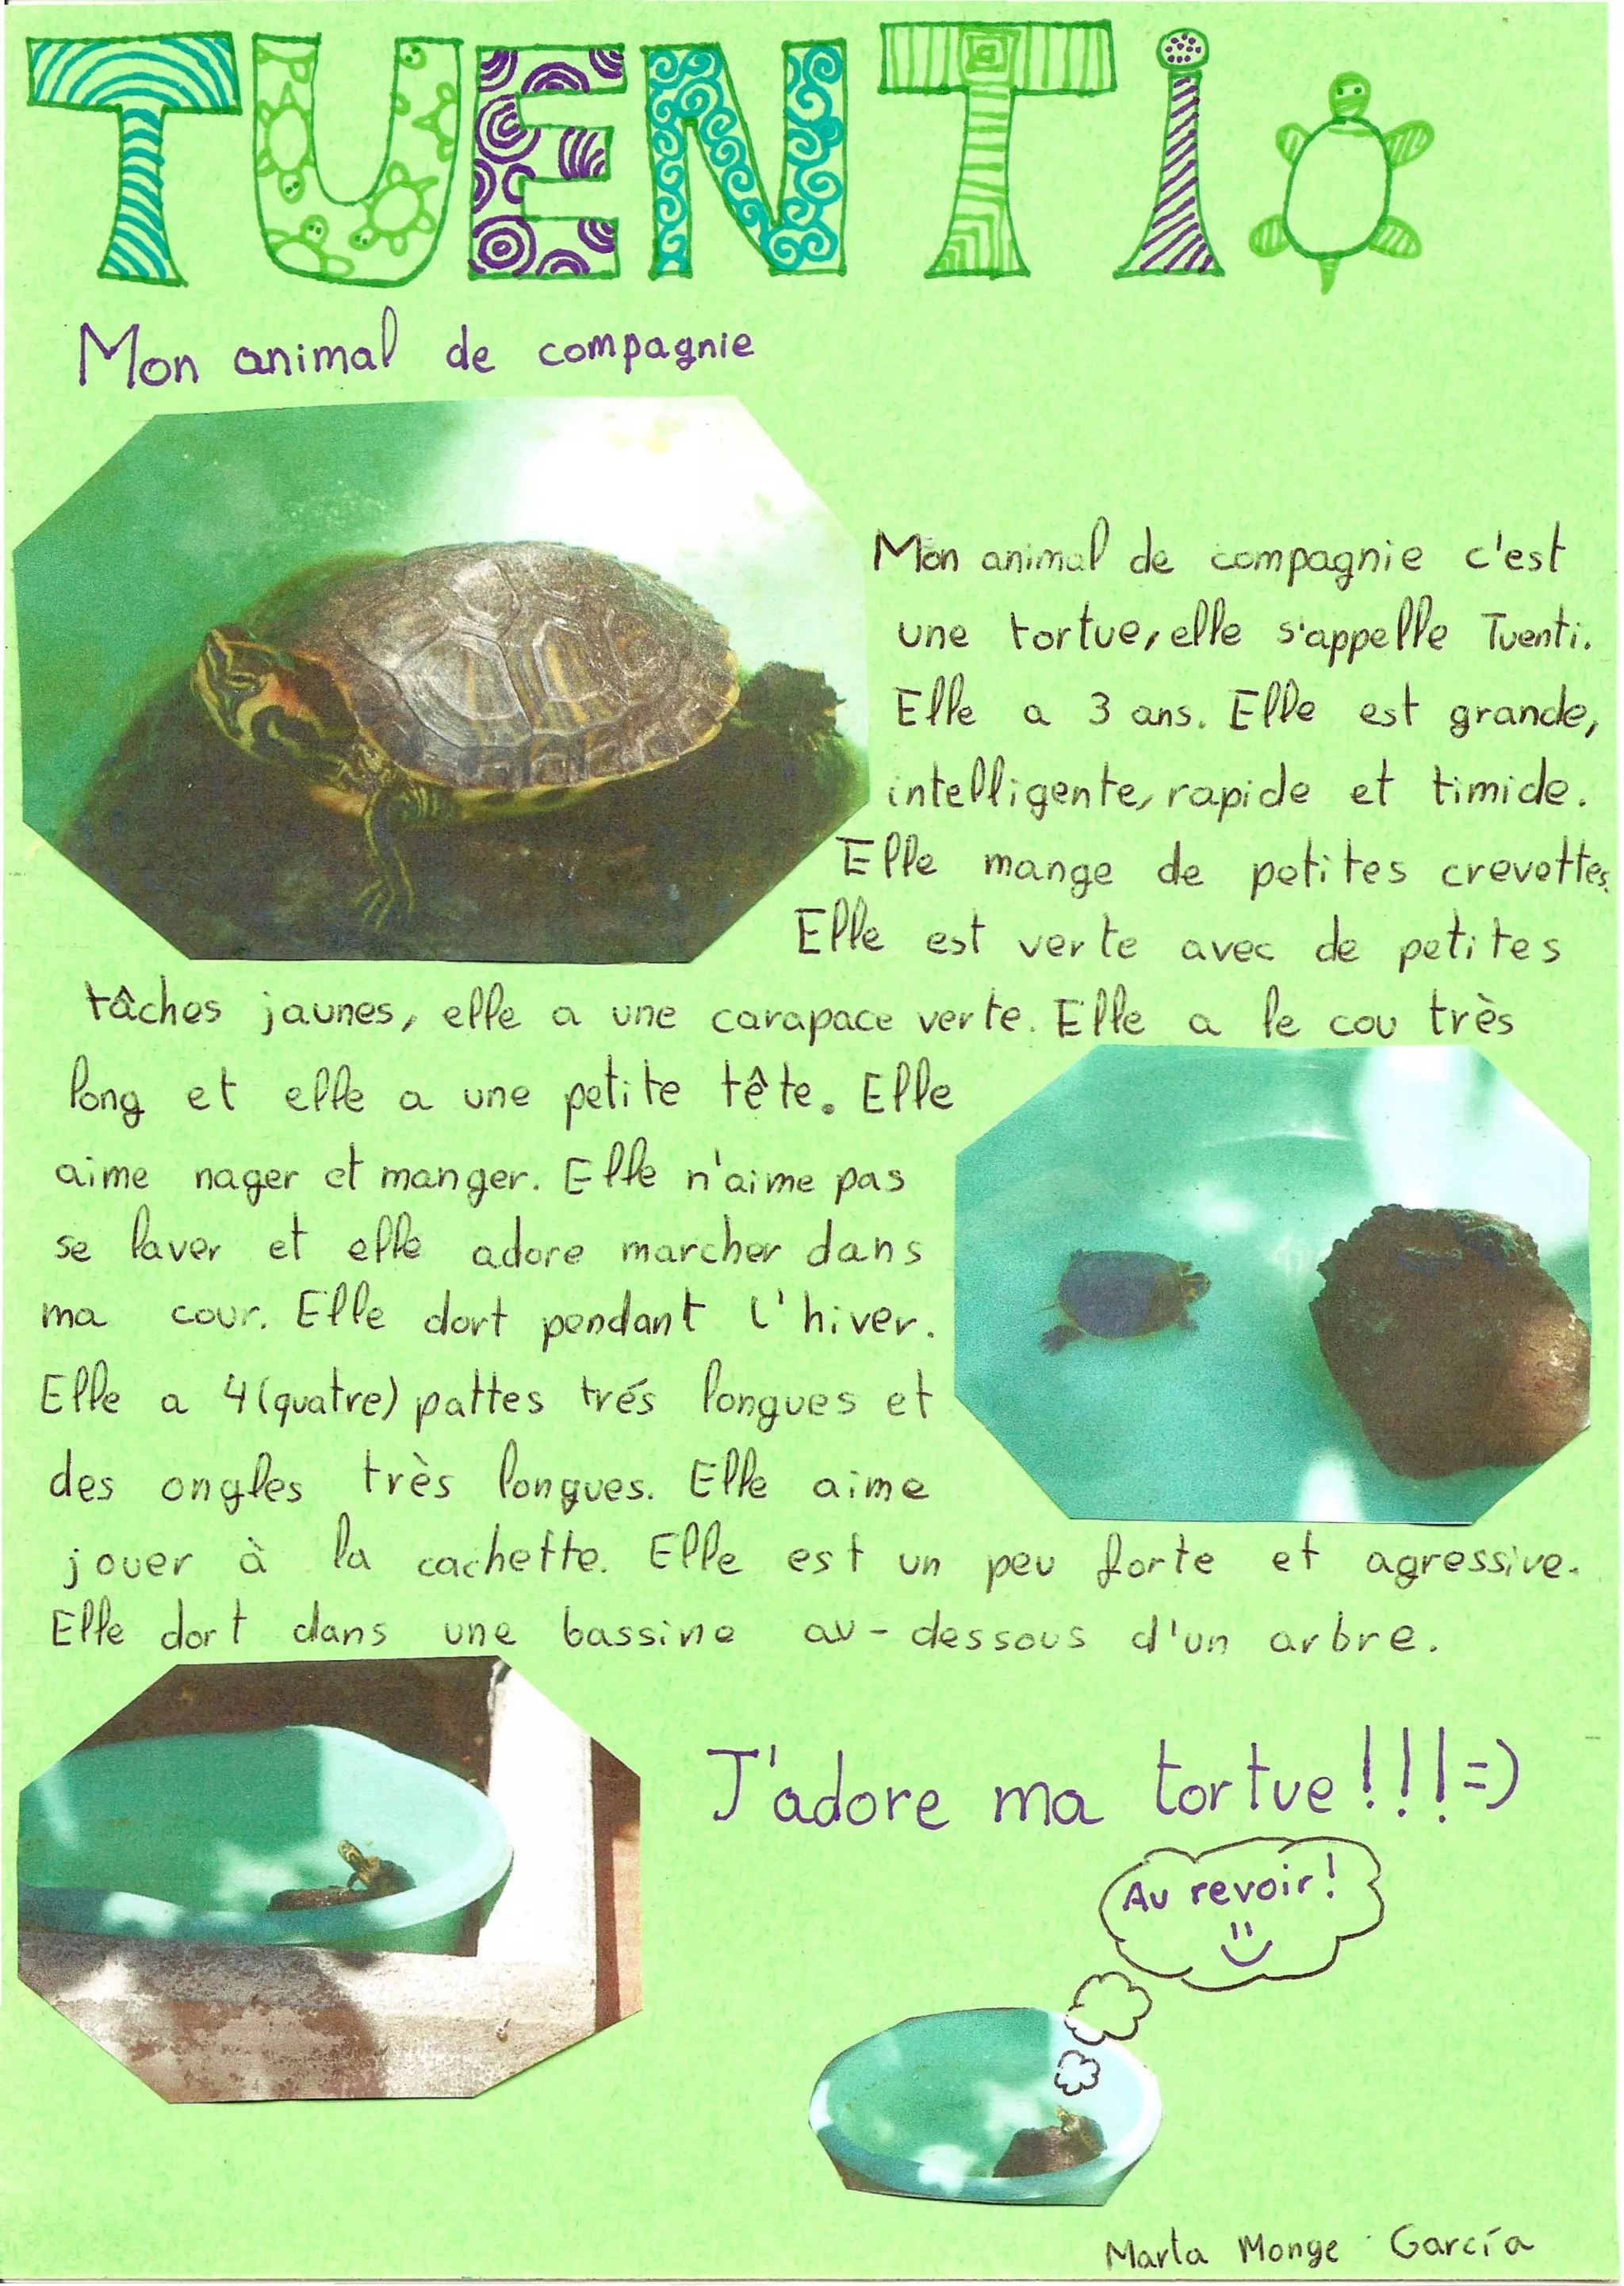 TUENTi
Mon animal de compagnie
Mon animal de compagnie c'est
une tortue, elle s'appelle Tuenti.
Elle a 3 ans. Elle est grande,
intelligente, rapide et timide.
Elle mange de petites crevettes.
Elle est verte avec de petites
tâches jaunes, elle a une carapace verte. Elle a le cou très
long et elle a une petite tête. Elle
aime nager et manger. Elle n'aime pas
se laver et elle adore marcher dans
ma cour. Elle dort pendant l'hiver.
Elle a 4 (quatre) pattes trés longues et
des ongles très longues. Elle aime
jouer à la cachette. Elle est un peu forte et agressive.
Elle dort dans une bassine au-dessous d'un arbre.
J'adore ma tortue!!!=)
Au revoir!
Marta Monge García